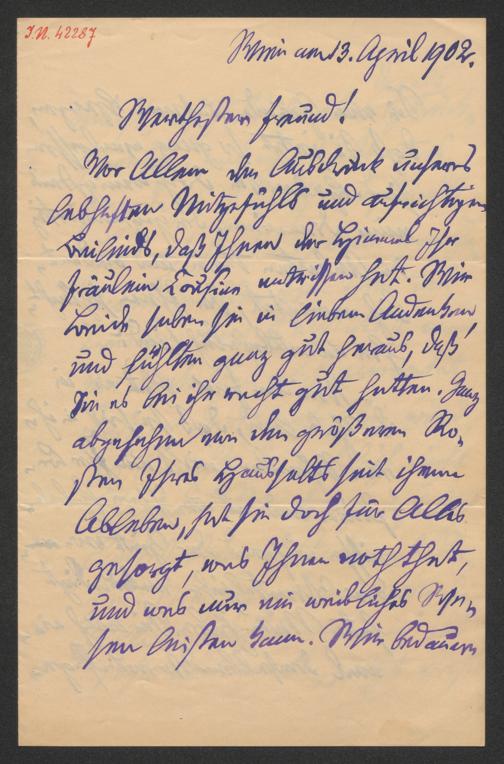 J.N. 42287
Wien am 13. April 1902.
Werthester Freund!
Vor Allem den Ausdruck unseres
lebhaften Mitgefühls und aufrichtigen
Beileids, daß Ihnen der Himmel Ihr
Fräulein Cousine entrissen hat. Wir
beide haben sie in liebem Andenken,
und fühlten ganz gut heraus, daß
Sie es bei ihr recht gut hatten. Ganz
abgesehen von den größeren Ko-
sten Ihres Haushalts seit ihrem
Ableben, hat sie doch für Alles
gesorgt, was Ihnen noth thut,
und was nur ein weibliches We-
sen leisten kann. Wir bedauern